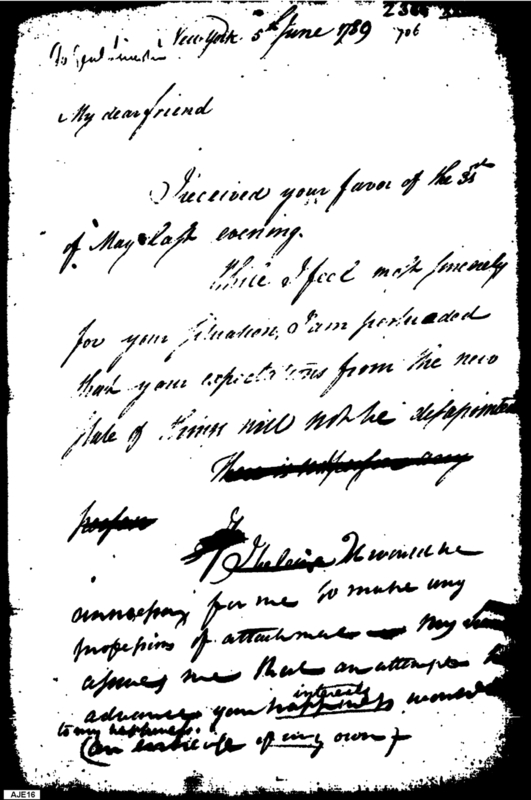 New-York 5th June 1789
706
To Genl
My dear friend
I received your favor of the 31st
of May last evening.
While I feel most sincerely
for your situation, I am persuaded
that your expectations from the new
state of things will not be disapointed
There is no person any
person
I believe It would be
unnecessary for me to make any
professions of attachment — My
assures me that an attempt to
advance your happiness would
interests
to my happiness.
(an of my own)
AJE16